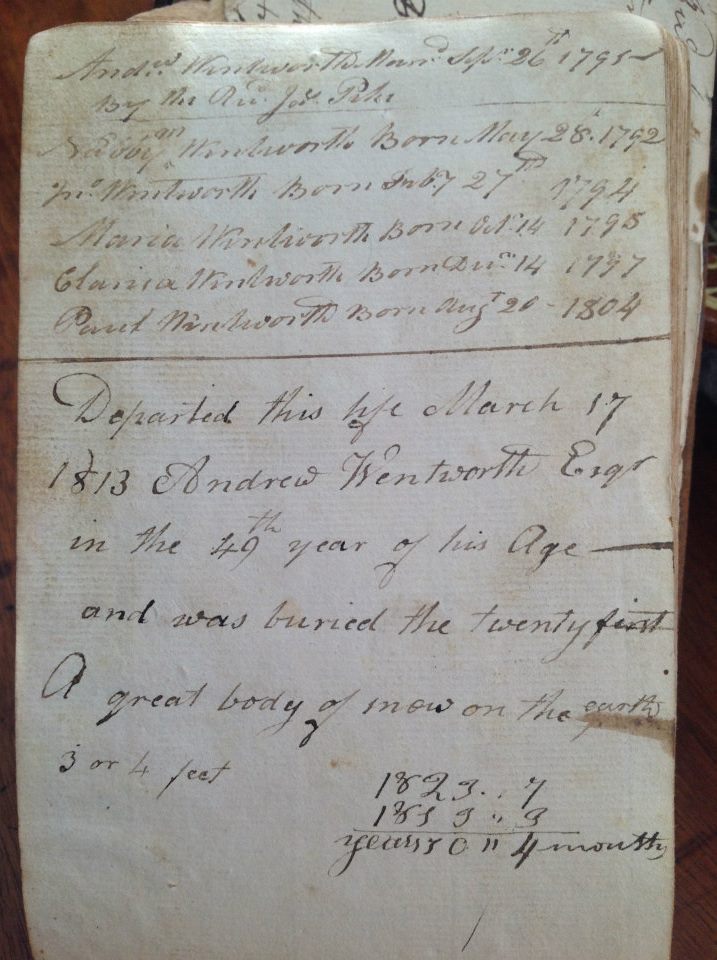 And.w Wentworth Marr.d Sep.r 26th 1795
By the Rev. Jos. Pike
Nabby Wentworth Born May 28. 1792
Jn.o Wentworth Born Feb.y 27th 1794
Maria Wentworth Born Oct. 14 1795
Clarisa Wentworth Born Dec.m 14 1797
Paul Wentworth Born Aug.t 20 - 1804
Departed this life March 17
1813 Andrew Wentworth Esqr
in the 49th year of his Age —
and was buried the twenty first
A great body of snow on the earth
3 or 4 feet
1823 .. 7
1813 " 3
years 10 " 4 months